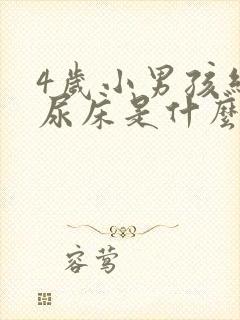 4歲小男孩
尿床是什麼
容鶯